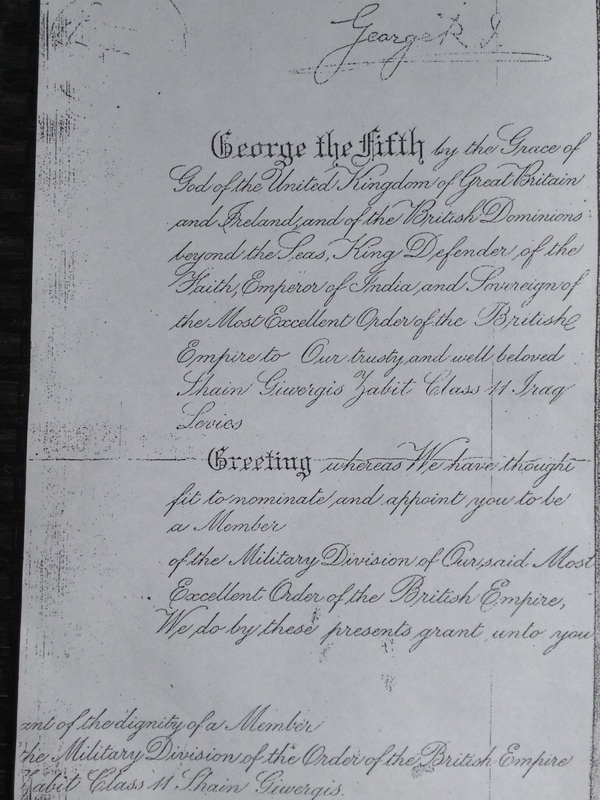 George R I
George the Fifth by the Grace of
God of the United Kingdom of Great Britain
and Ireland, and of the British Dominions
beyond the Seas, King Defender, of the
Faith, Emperor of India, and Sovereign of
the Most Excellent Order of the British
Empire to Our trusty and well beloved
Shain Giwergis Zabit Class 11 Iraq
Levies
Greeting whereas We have thought
fit to nominate and appoint you to be
a Member
of the Military Division of Our said Most
Excellent Order of the British Empire,
We do by these presents grant unto you
ant of the dignity of a Member
the Military Division of the Order of the British Empire
Zabit Class 11 Shain Giwergis.